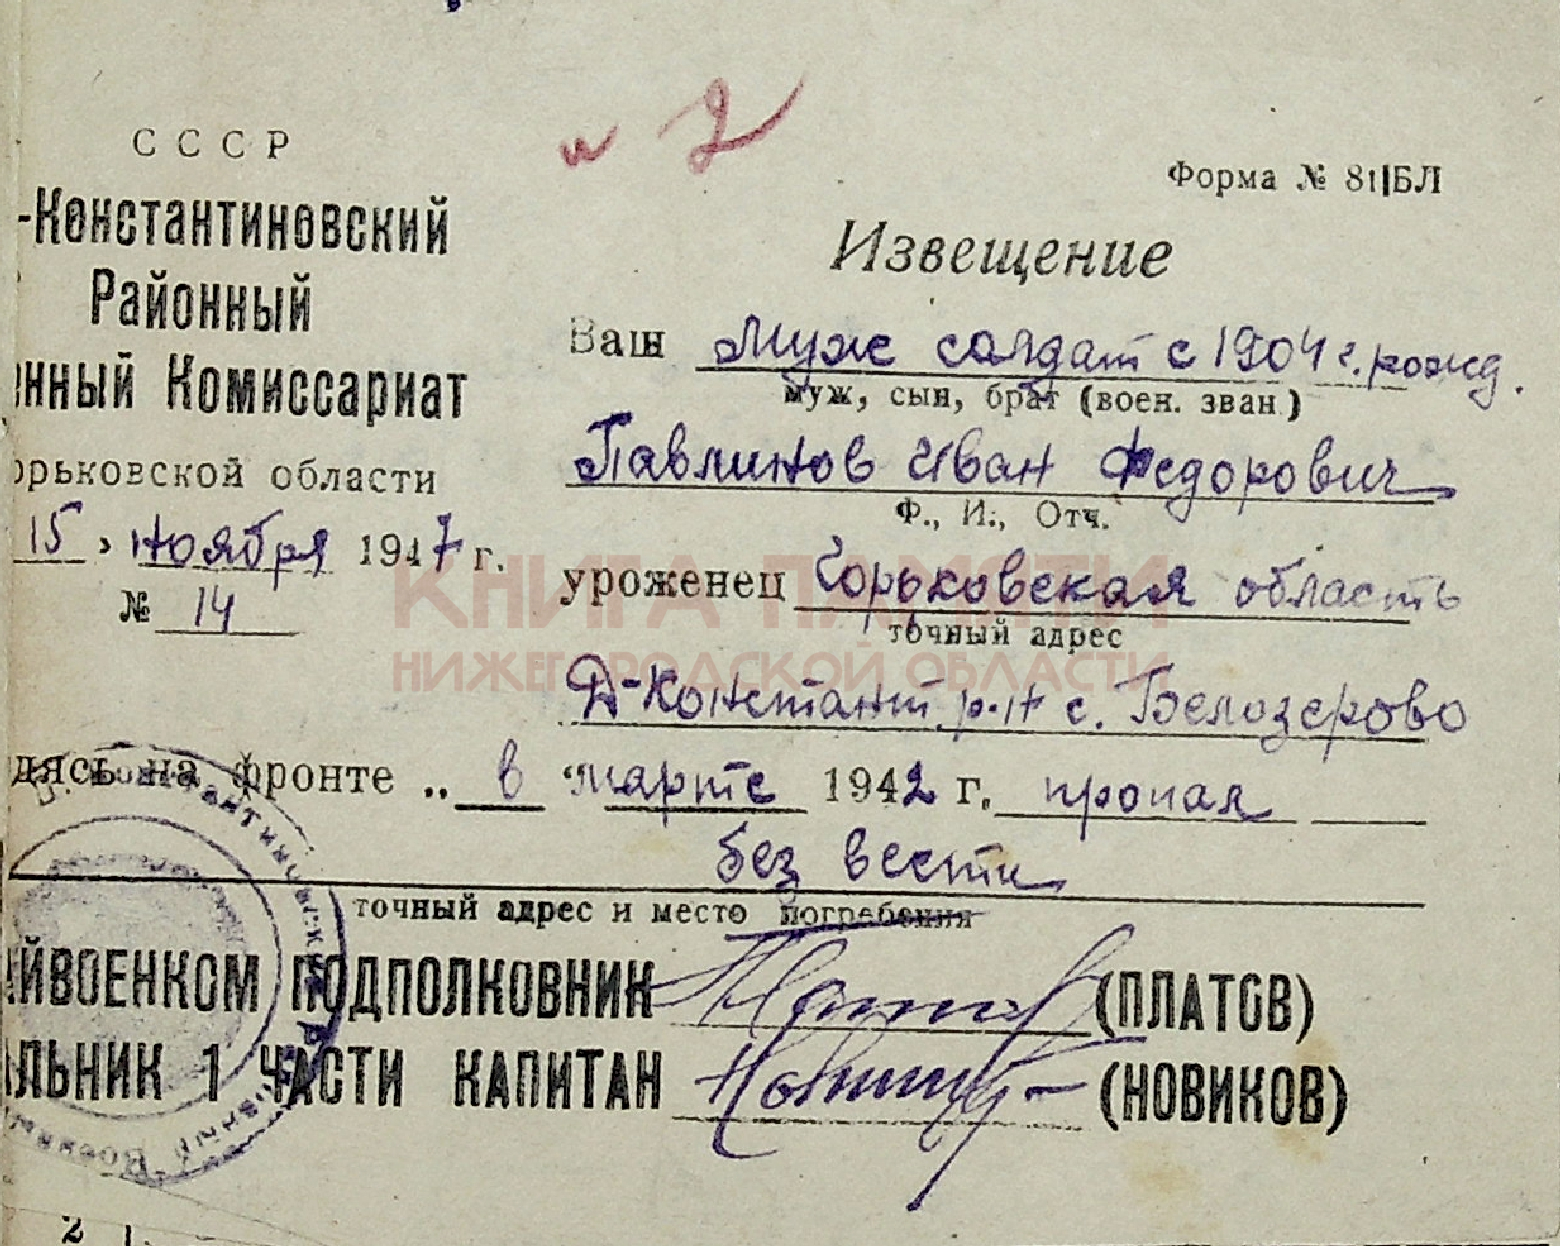 СССР
-Константиновский
Районный
енный Комиссариат
орьковской области
15 , ноября 1947 г.
№ 14
и 2
Форма № 81|БЛ
Извещение
Ваш муж солдат с 1904 г. рожд.
муж, сын, брат (воен. зван.)
Павлинов Иван Федорович
Ф., И., Отч.
уроженец Горьковская область
точный адрес
Д-Константи. р-н с. Белозерово
дясь на фронте „ в “ марте 1942 г. пропал
без вести
точный адрес и место погребения
йвоенком подполковник (ПЛАТОВ)
льник 1 части капитан (НОВИКОВ)
КНИГА ПАМЯТИ
НИЖЕГОРОДСКОЙ ОБЛАСТИ